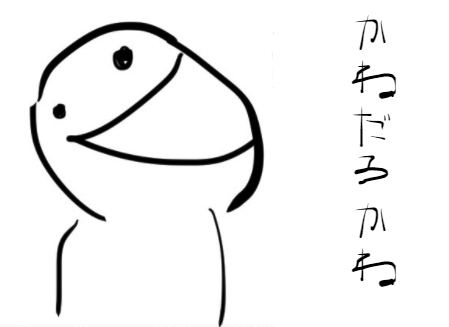 かねだるかね